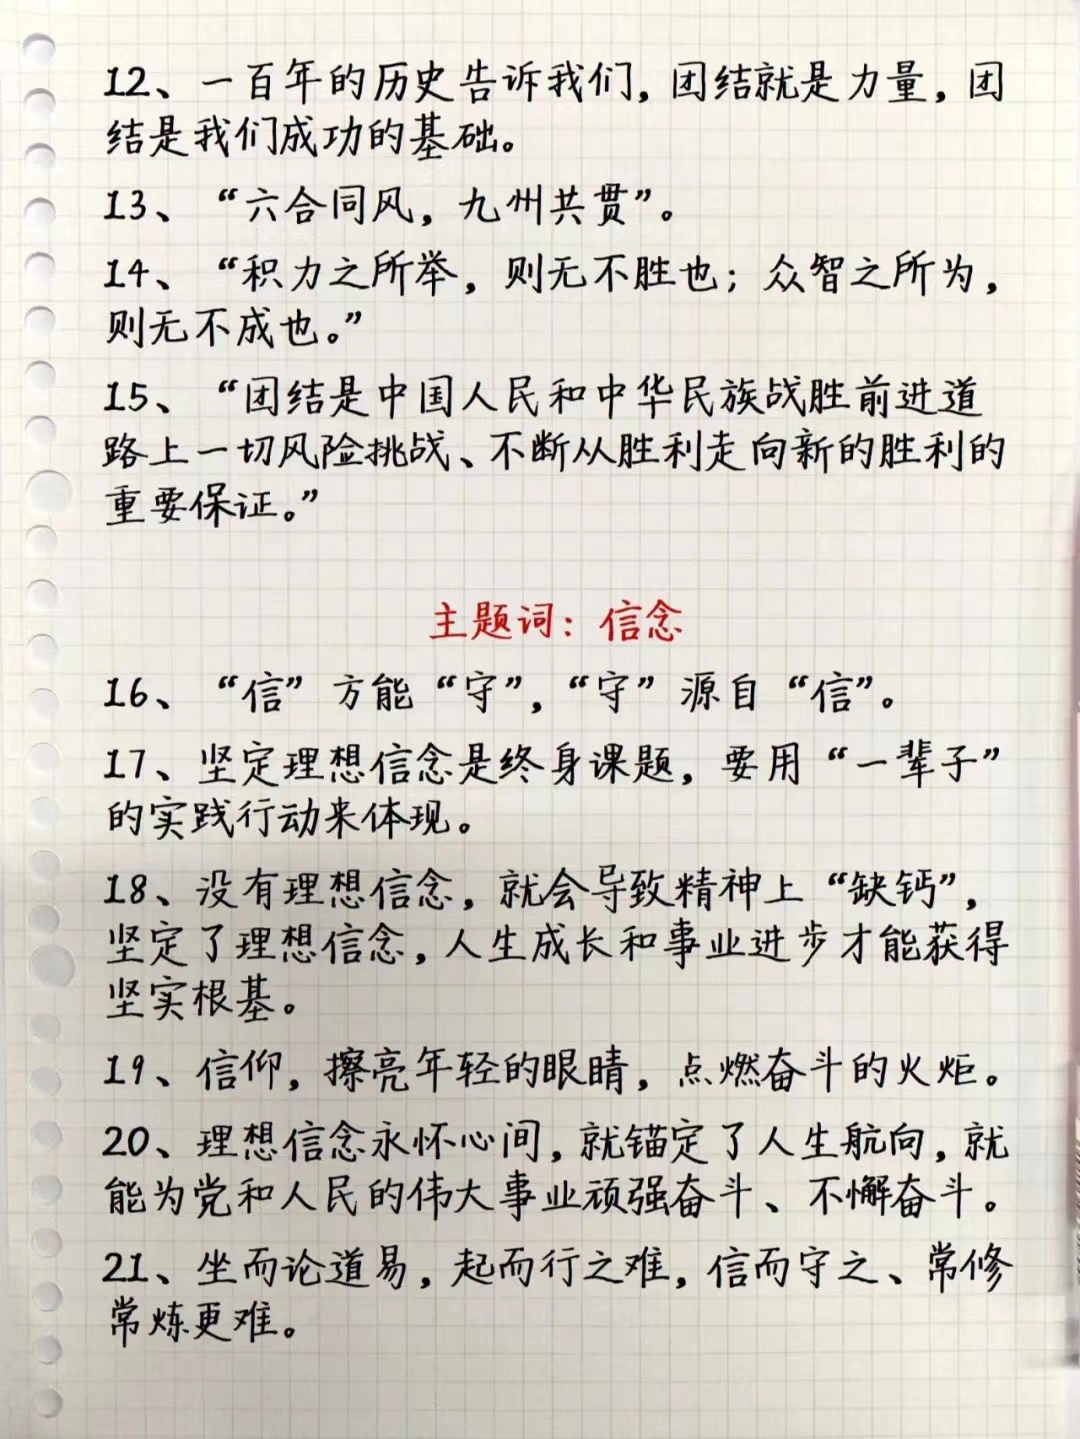 12、一百年的历史告诉我们，团结就是力量，团
结是我们成功的基础。
13、“六合同风，九州共贯”。
14、“积力之所举，则无不胜也；众智之所为，
则无不成也。”
15、“团结是中国人民和中华民族战胜前进道
路上一切风险挑战、不断从胜利走向新的胜利的
重要保证。”
主题词：信念
16、“信”方能“守”，“守”源自“信”。
17、坚定理想信念是终身课题，要用“一辈子”
的实践行动来体现。
18、没有理想信念，就会导致精神上“缺钙”，
坚定了理想信念，人生成长和事业进步才能获得
坚实根基。
19、信仰，擦亮年轻的眼睛，点燃奋斗的火炬。
20、理想信念永怀心间，就锚定了人生航向，就
能为党和人民的伟大事业顽强奋斗、不懈奋斗。
21、坐而论道易，起而行之难，信而守之、常修
常炼更难。